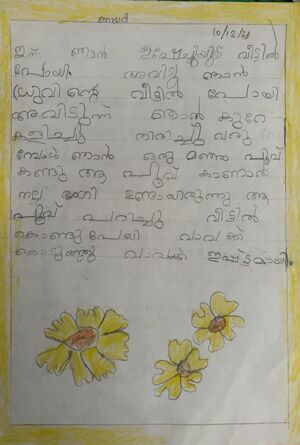 ഞായർ
10/12/23
ഇന്ന് ഞാൻ ഉമ്മച്ചിയുടെ വീട്ടിൽ
പോയി. അവിട്ടു ഞാൻ
ധ്രുവിന്റെ വീട്ടിൽ പോയി
അവിടുന്ന് ഞാൻ കുറേ
കളിച്ചു തിരിച്ചു വരു
മ്പോൾ ഞാൻ ഒരു മഞ്ഞ പൂവ്
കണ്ടു ആ പൂവ് കാണാൻ
നല്ല ഭംഗി ഉണ്ടായിരുന്നു ആ
പൂവ് പറിച്ചു വീട്ടിൽ
കൊണ്ടുപോയി വാവക്ക്
കൊടുത്തു വാവക്ക് ഇഷ്ട്ടമായി.